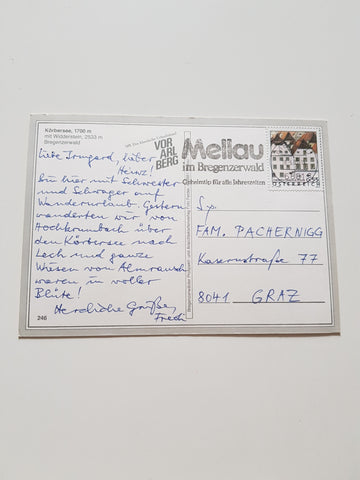 Körbersee, 1700 m
mit Widderstein, 2533 m
Bregenzerwald
Liebe Irmgard, lieber
Heinz!
bin hier mit Schwester
und Schwager auf
Wanderurlaub. Gestern
wanderten wir von
Hochkrumbach über
den Körbersee nach
Lech und ganze
Wiesen von Almrausch
waren in voller
Blüte!
Herzliche Grüße
246
VOR
ARL
BERG
Mellau
im Bregenzerwald
Geheimtip für alle Jahreszeiten
ÖSTERREICH
FAM. PACHERNIGG
Kasernstraße 77
8041 GRAZ